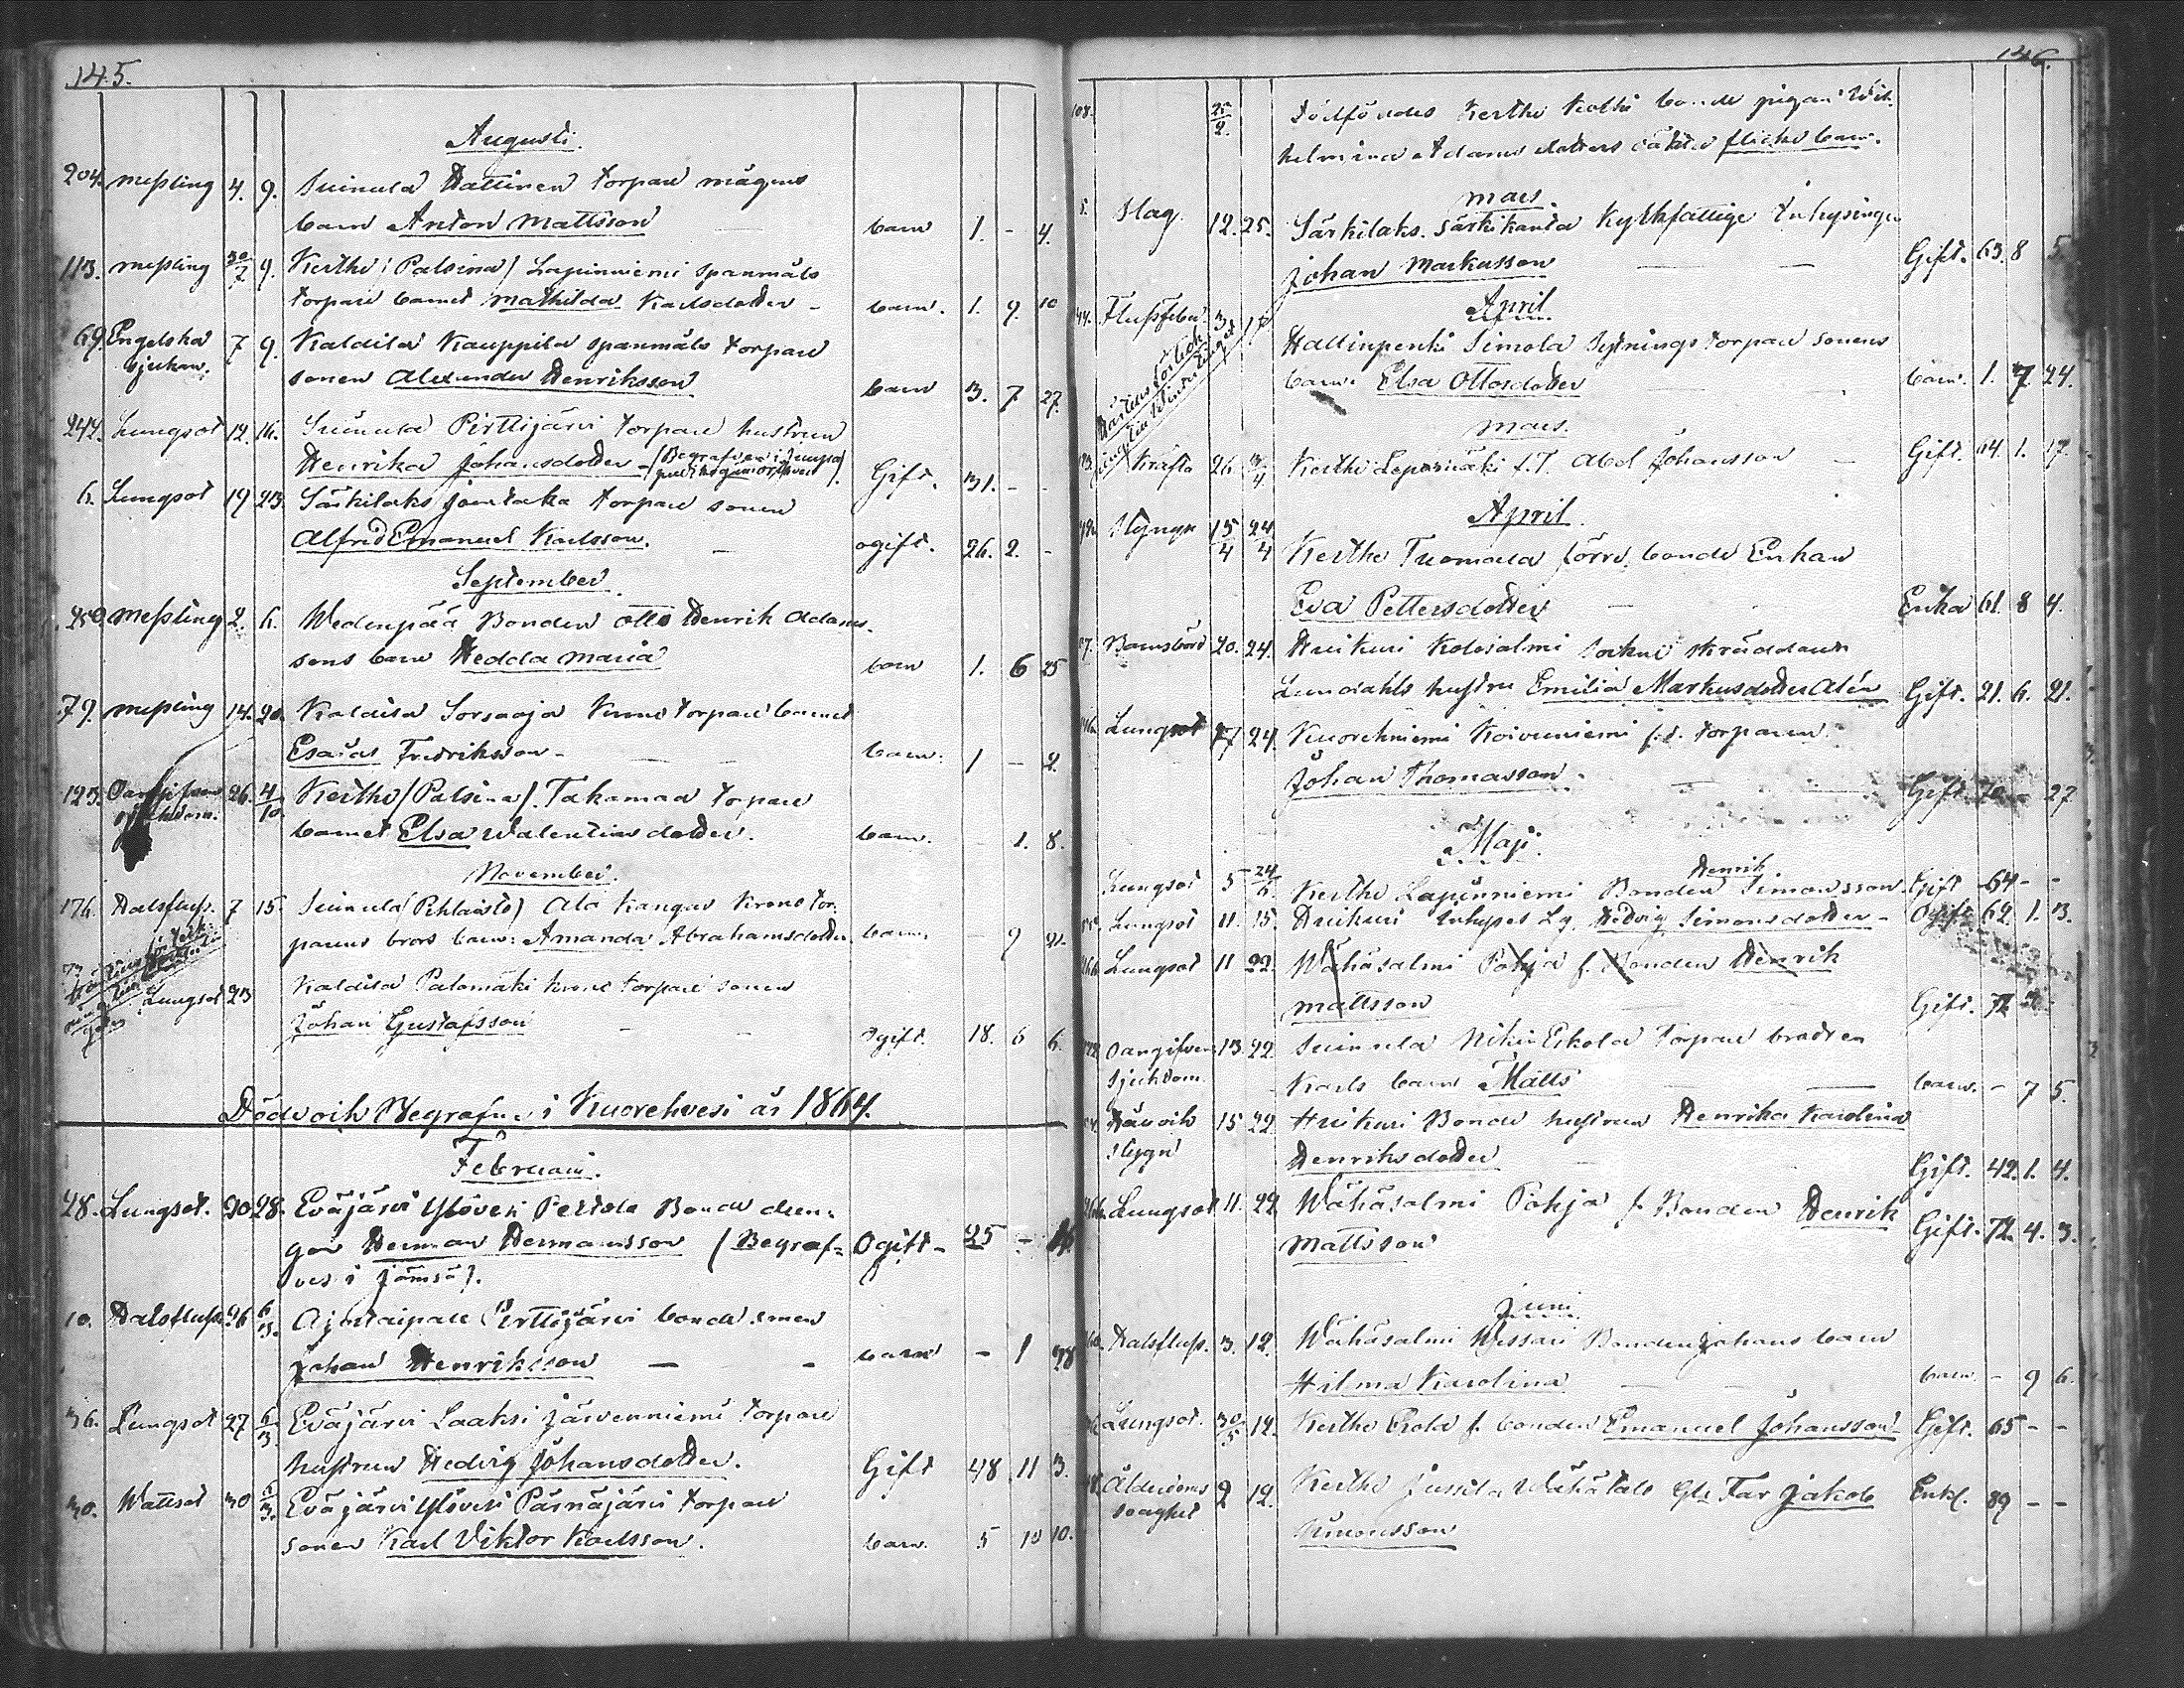 145.
Augusti.
204. Messling 4. 9. Suinula Hallinen torpare mågens
barn Anton Mattsson barn 1. - 4.
113. Messling 30/7 9. Kerthe (Palsina) Lapinniemi spanmåls
torpare barnet Mathilda Karlsdotter - barn. 1. 9. 10
69. Engelska 7 9. Kaldila Kauppila spanmåls torpare
sjukan.
sonen Alexander Henriksson barn 3. 7 27.
242. Lungsot 12. 16. Suinula Pirttijärvi torpare hustrun
Henrika Johansdotter - (Begrafven i
Gift. 31. - -
6. Lungsot 19 23. Särkilaks torpare sonen
Alfred Emanuel Karlsson. - ogift. 26. 2. -
September
250 Messling 2. 6. Wedenpää Bonden Otto Henrik Adams-
sons barn Hedda Maria barn 1. 6 25
79. Messling 14. 20. Kaldila Sorsaoja Krono torpare barnet
Esaias Fredriksson - barn. 1 - 2.
123. Oangifven 26. 4/10 Kerthe (Palsina). Takamaa torpare
sjukdom.
barnet Elsa Walentinsdotter. barn. 1. 8.
November.
176. Halsfluss. 7 15. Suinula (Pihlaisto) Ala Kangas Krono tor-
parens brors barn: Amanda Abrahamsdotter. barn. - 9 21.
Lungsot 23 Kaldila Palomäki krono torpare sonen
Johan Gustafsson ogift. 18. 6 6.
Döde och Begrafne i Kuorehvesi år 1864.
Februari.
28. Lungsot. 20. 28. Eväjärvi Ylöveri Perttola Bonde drän-
gen Herman Hermansson (Begraf- Ogift - 25 -
ves i Jämsä).
10. Halsfluss 26 6/3. Pirttijärvi bonde sonen
Johan Henriksson - - barn - 1 28
36. Lungsot 27 6/3 Eväjärvi Laaksi Järvenniemi torpare
hustrun Hedvig Johansdotter. Gift 48 11 3.
30. Wattsot 30 6/3. Eväjärvi Ylöveri Pärnäjärvi torpare
sonen Karl Viktor Karlsson. barn. 5 10 10.
146.
108. Dödföddes Kerthe Kolhi bonde pigan Wil-
helmina Adamsdotters oäkta flicke barn.
Mars.
Slag. 12. 25. Särkilaks. Särkikanta Kyrkfattige Inhysingen
Johan Markusson - - Gift. 63. 8 5
April.
Flussfeber 3 17 Hallinpenki Simola Sytnings torpare sonens
barn. Elsa Ottosdotter barn. 1. 7. 24.
Mars.
Kräfta 26 3/4 Kerthe Leponiäki f.T. Abel Johansson - Gift. 64. 1. 17.
April
Styng 15/4 24/4 Kerthe Tuomala förre bonde Enkan
Eva Pettersdotter - - Enka 61. 8 4.
Barnsbörd 20. 24. Huikuri Kolosalmi Sockne skräddaren
Lundahls hustru Emilia Markusdotter Alén Gift. 21. 6. 21.
Lungsot 17 24. Kuorehniemi Koivuniemi f.d. torparen
Johan Thomasson. - - Gift. 70 - 27
Maji.
Lungsot 5 Kerthe Lapinniemi Bonden Henrik Simonsson Gift 64 - -
Lungsot 11. 15. Huikuri Inhyses Hedvig Simonsdotter - Ogift 62 1. 3.
Lungsot 11 22. Wähäsalmi Pohja f. Bonden Henrik
Mattsson Gift. 72
Oangifven 13. 22. Suinula Niki Eskola Torpare brodren
sjukdom.
Karls barn Matts - - barn. - 7 5.
Håll och 15 22. Huikuri Bonde hustrun Henrika Karolina
Stygn
Henriksdotter Gift. 42. 1. 4.
Lungsot 11. 22. Wähäsalmi Pohja f. Bonden Henrik
Mattsson Gift. 72. 4. 3.
Juni
Halsfluss. 3. 12. Wähäsalmi Wessari Bonden Johans barn
Hilma Karolina - - barn. - 9 6.
Lungsot. 30/5 12. Kerthe Erola f. bonden Emanuel Johansson - Gift. 65 - -
Ålderdoms 2 12. Kerthe Jussila Wähätalo Far Jakob Enkl. 89 - -
svaghet
Simonsson